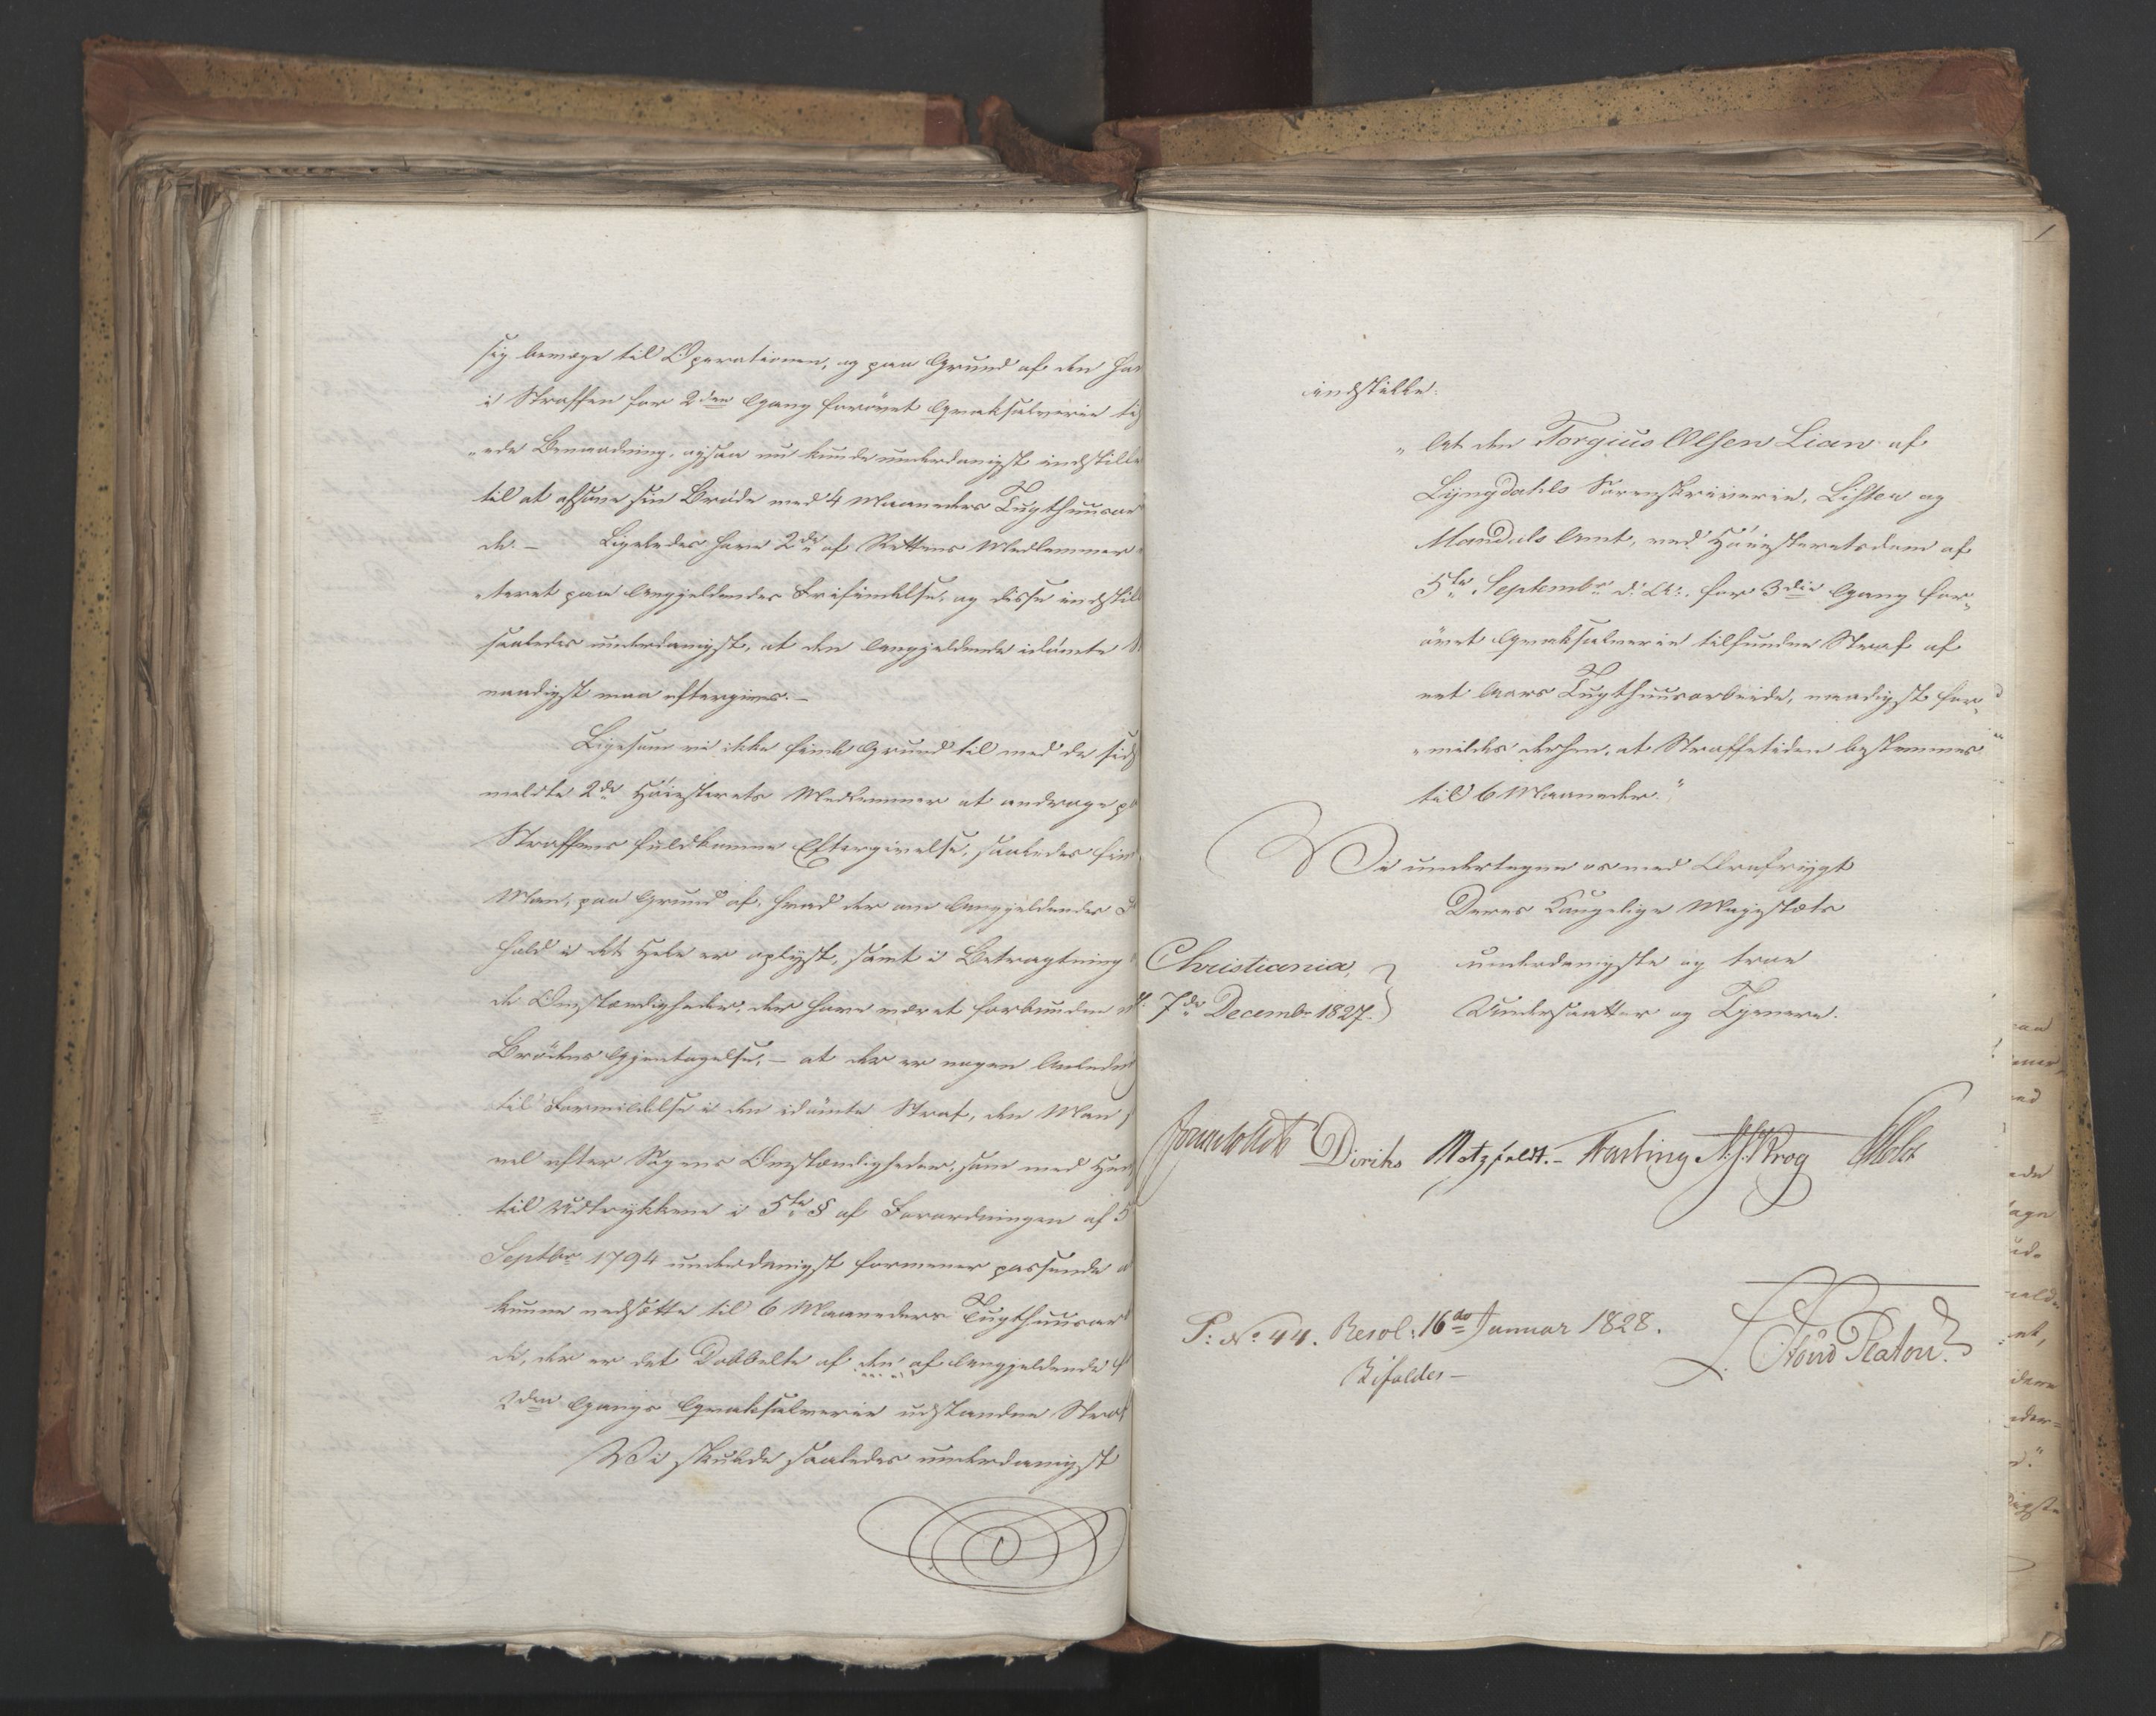 sig bevæge til Operationen, og paa Grund af den Har
i Straffen for 2den Gang forøvet Qvaksalverie til
„ede Benaadning, ogsaa nu kunde underdanigst indstille
til at afsone sin Brøde med 4 Maaneders Tugthuusar
de. – Ligeledes have 2de af Rettens Medlemmer
„teret paa Angjeldendes Frifindelse, og disse indstill
saaledes underdanigst, at den Angjeldende idømte
naadigst maa eftergives. –
Ligesom vi ikke finde Grund til med de sidst
meldte 2de Høiesterets Medlemmer at andrage p
Straffens fuldkomne Eftergivelse, saaledes fin
Man, paa Grund af, hvad der om Angjeldendes
hold i det Hele er oplyst, samt i Betragtning
de Omstændigheder, der have været forbunden
Brødens Gjentagelse, – at der er nogen Anledn
til Formildelse i den idømte Straf, den Man
vel efter Sagens Omstændigheder, som med Hen
til Udtrykkene i 5te § af Forordningen af 5
Septbr 1794 underdanigst formener passende
kunne nedsætte til 6 Maaneders Tugthuusar
de, der er det Dobbelte af den af Angjeldende f
2den Gangs Qvaksalverie udstandne Straf
Vi skulde saaledes underdanigst
indstille:
„At den Torgius Olsen Lian af
Lyngdahls Sorenskriverie, Lister og
Mandals Amt, ved Høiesteretsdom af
5te Septembr d: A:, for 3die Gang for„
øvet Qvaksalverie tilfundne Straf af
eet Aars Tugthuusarbeide, naadigst for„
„mildes derhen, at Straffetiden bestemmes
til 6 Maaneder.“
Vi undertegne os med Ærefrygt
Deres Kongelige Majestæts
Christiania,
underdanigste og troe
d: 7de Decembr 1827.
Undersaatter og Tjenere.
Diriks Motzfeldt. – Fasting N. J. Krog Holst
P: No 44. Resol: 16de Januar 1828.
Bifaldes –
Platou.